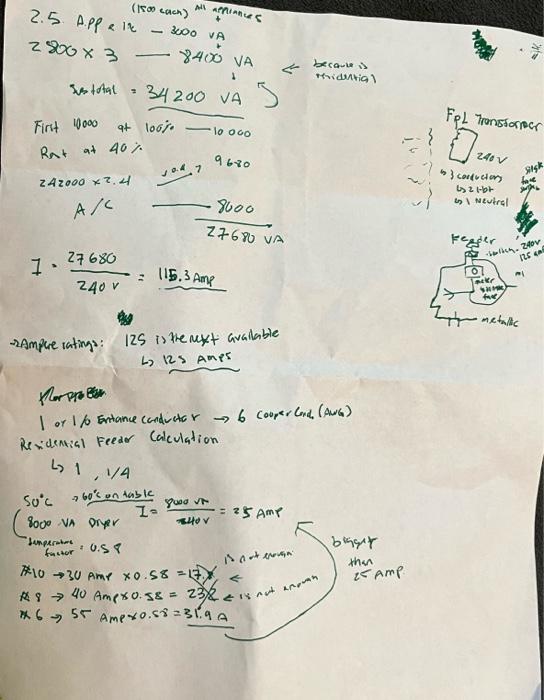 (1500 each) All appliances
2.5. App & 1k - 3000 VA
2800 x 3 — 8400 VA
← because is residential
Subtotal = 34200 VA
First 10000 at 100% — 10 000
Rest at 40% 9680
242000 x 2.4
A/C — 8000
27680 VA
I = 27680 / 240 V = 115.3 Amp
→ Ampere ratings: 125 is the next available
↳ 125 Amps
FPL Transformer
240 V
↳ 3 conductors
↳ 2 Hot
↳ 1 Neutral
Feeder
switch - 240V
125 am
meter
metallic
1 or 1/0 Entance conductor → 6 Cooper Cond. (AWG)
Residential Feeder Calculation
↳ 1, 1/4
50°C → 60°C on table
8000 VA Dryer
I = 8000 VA / 240 V = 25 Amp
temperature factor = 0.58
#10 → 30 Amp x 0.58 = 17. ← is not enough
#8 → 40 Amp x 0.58 = 23.2 ← is not enough
#6 → 55 Amp x 0.58 = 31.9 A
bigger
then
25 Amp